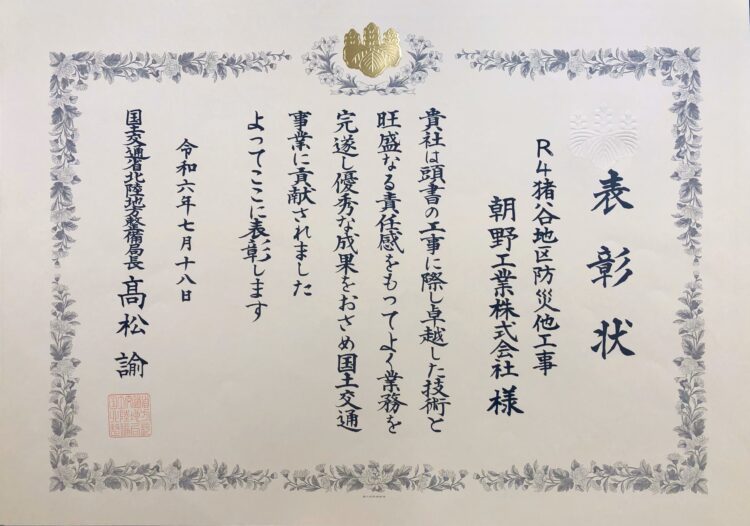 表彰状
R4猪谷地区防災他工事
朝野工業株式会社 様
貴社は頭書の工事に際し卓越した技術と
旺盛なる責任感をもってよく業務を
完遂し優秀な成果をおさめ国土交通
事業に貢献されました
よってここに表彰します
令和六年七月十八日
国土交通省北陸地方整備局長 髙松 諭